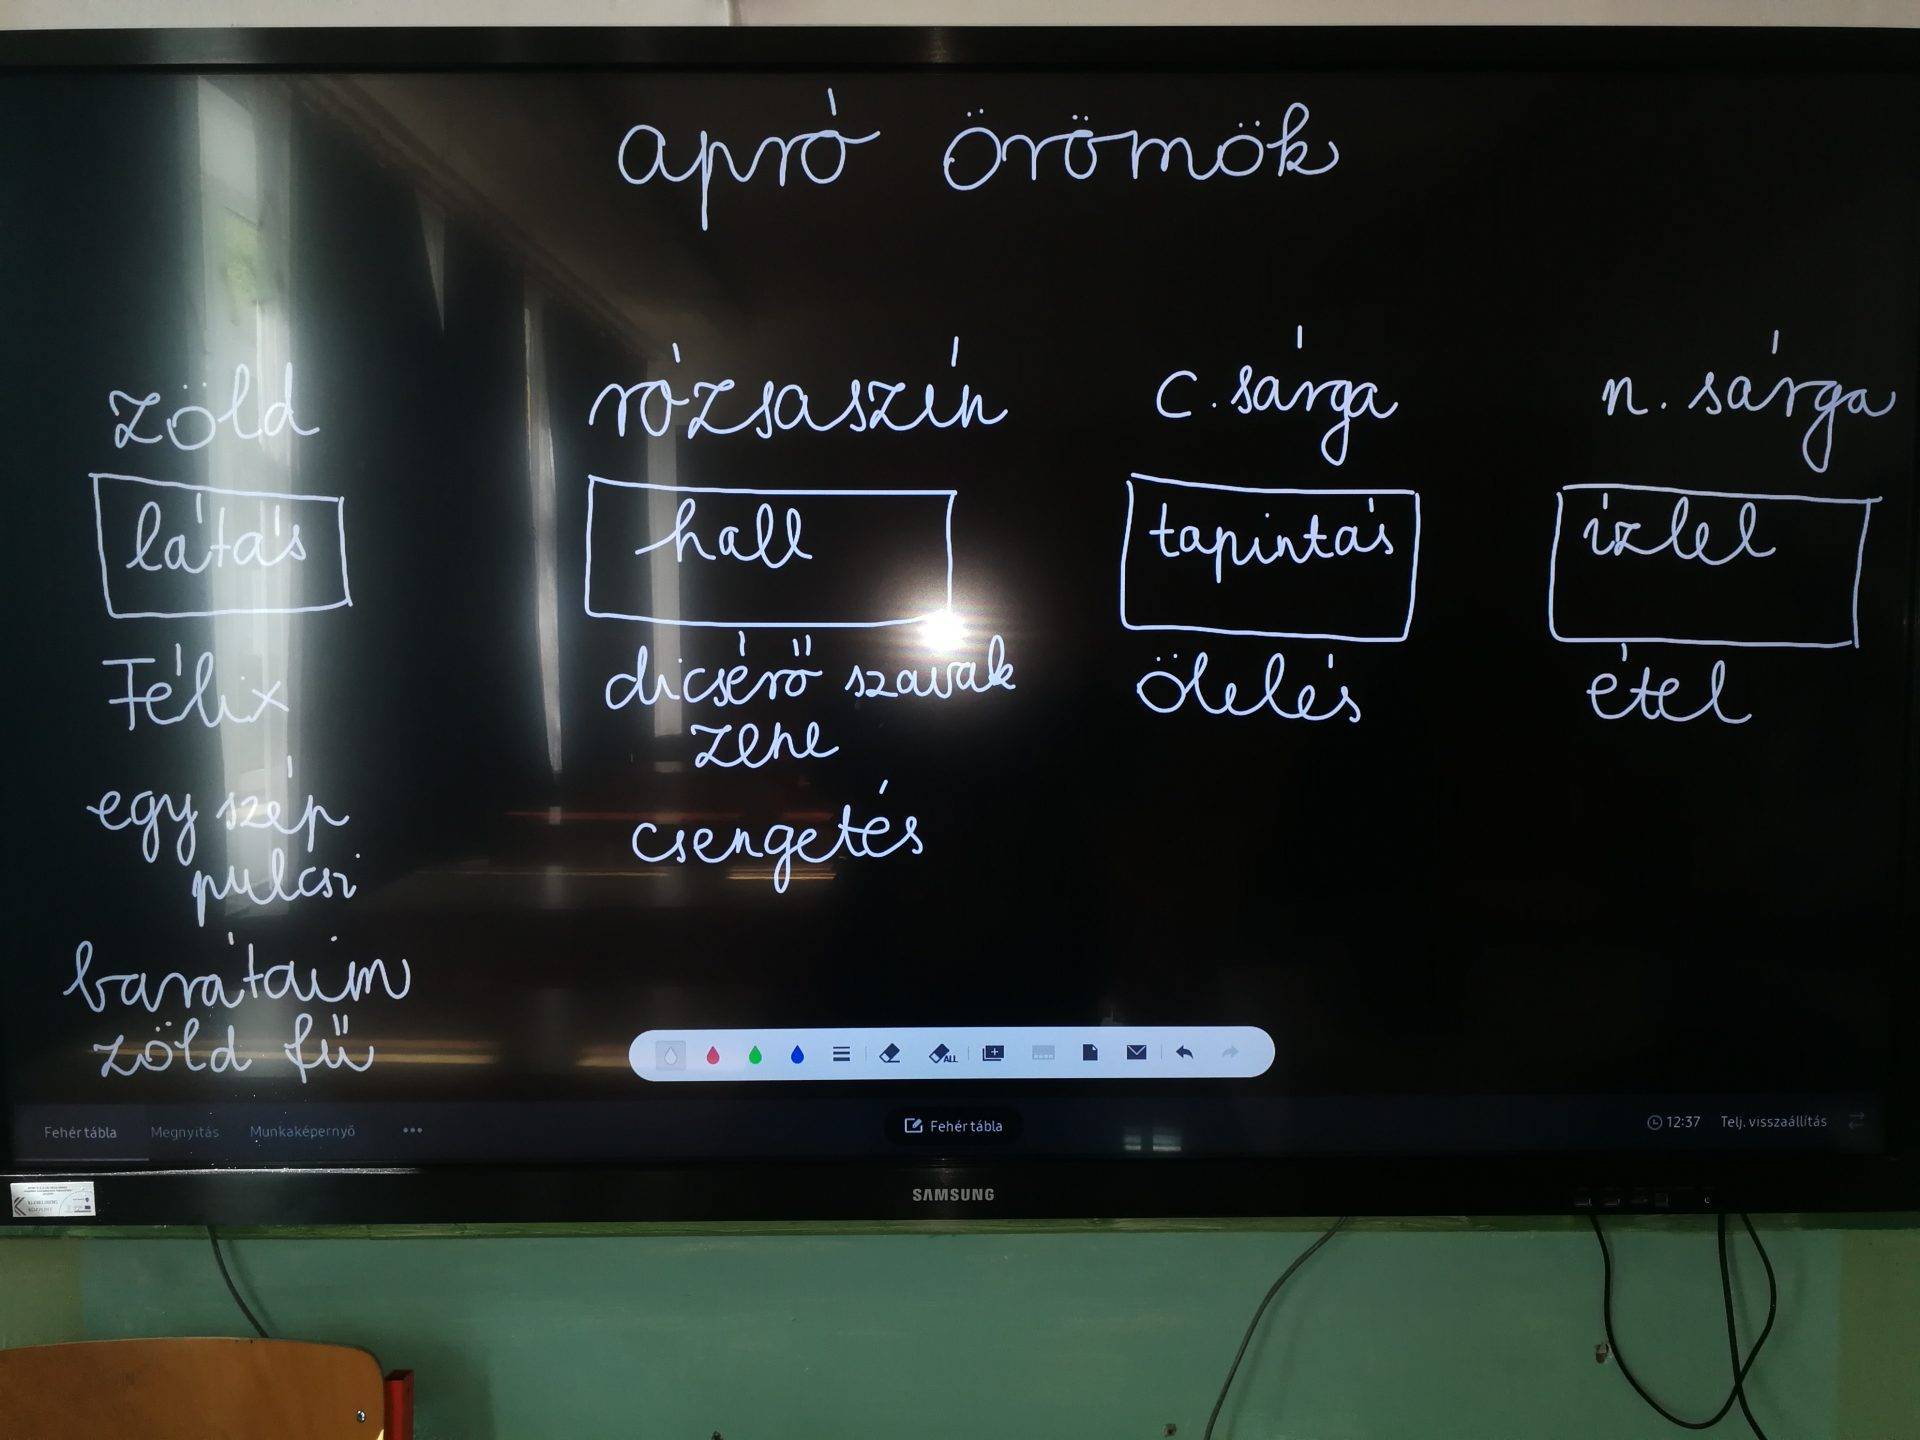 apró örömök
zöld
látás
Félix
egy szép
pulcsi
barátaim
zöld fű
rózsaszín
hall
dicsérő szavak
zene
csengetés
c. sárga
tapintás
ölelés
n. sárga
ízlel
étel
ALL
Fehér tábla
Megnyitás
Munkaképernyő
Fehér tábla
12:37
Telj. visszaállítás
SAMSUNG